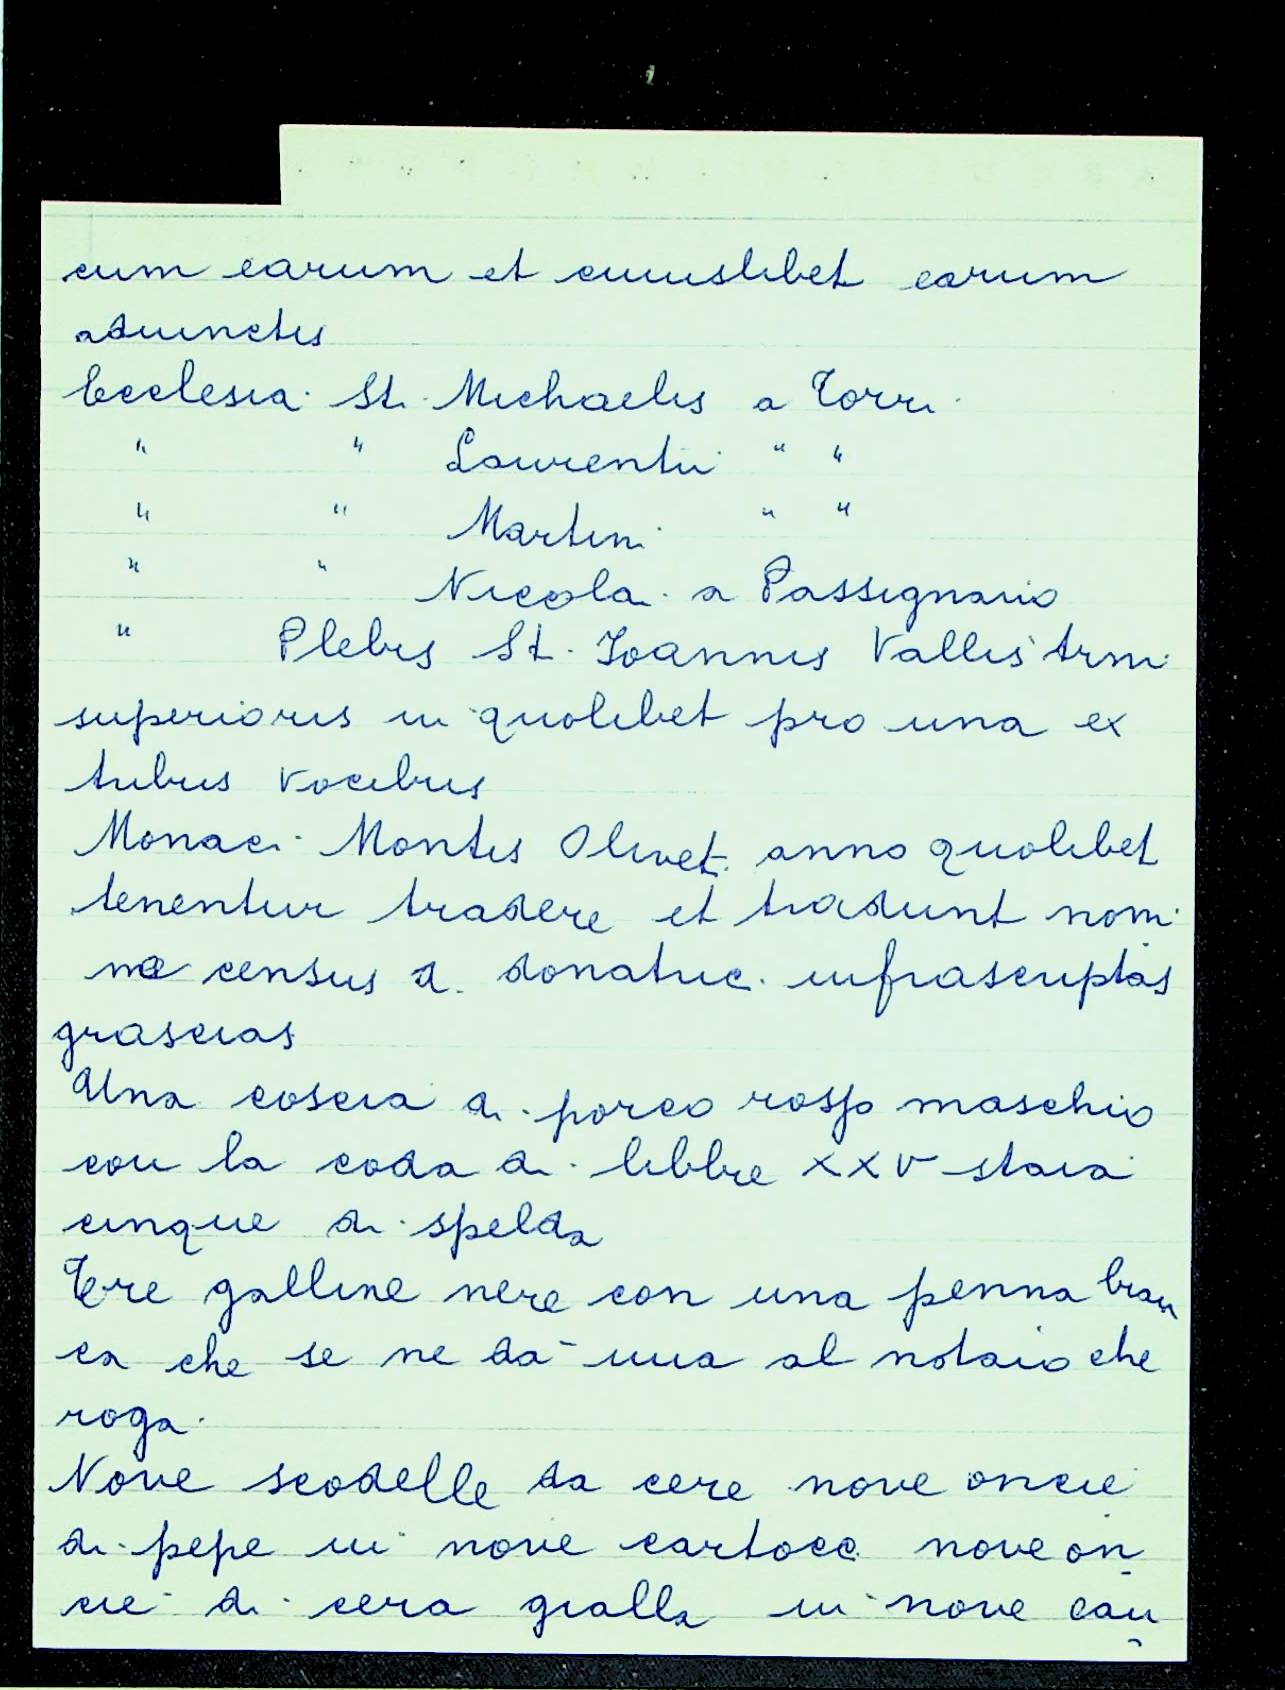 cum earum et cuiuslibet earum
adiunctis
Ecclesia St. Michaelis a Torri
" " Laurentii " "
" " Martini " "
" " Nicolai a Passignano
" Plebis St. Joannis Vallis Arni
superioris in quolibet pro una ex
tribus vocibus
Monaci Montis Olivet. anno quolibet
tenentur tradere et tradunt nomi
ne census d. donatuc. infrascriptas
grascias
Una coscia di porco rosso maschio
con la coda di libbre XXV staia
cinque di spelda
Tre galline nere con una penna bian
ca che se ne dà una al notaio che
roga.
Nove scodelle da cere nove oncie
di pepe in nove cartocci nove on
cie di cera gialla in nove can